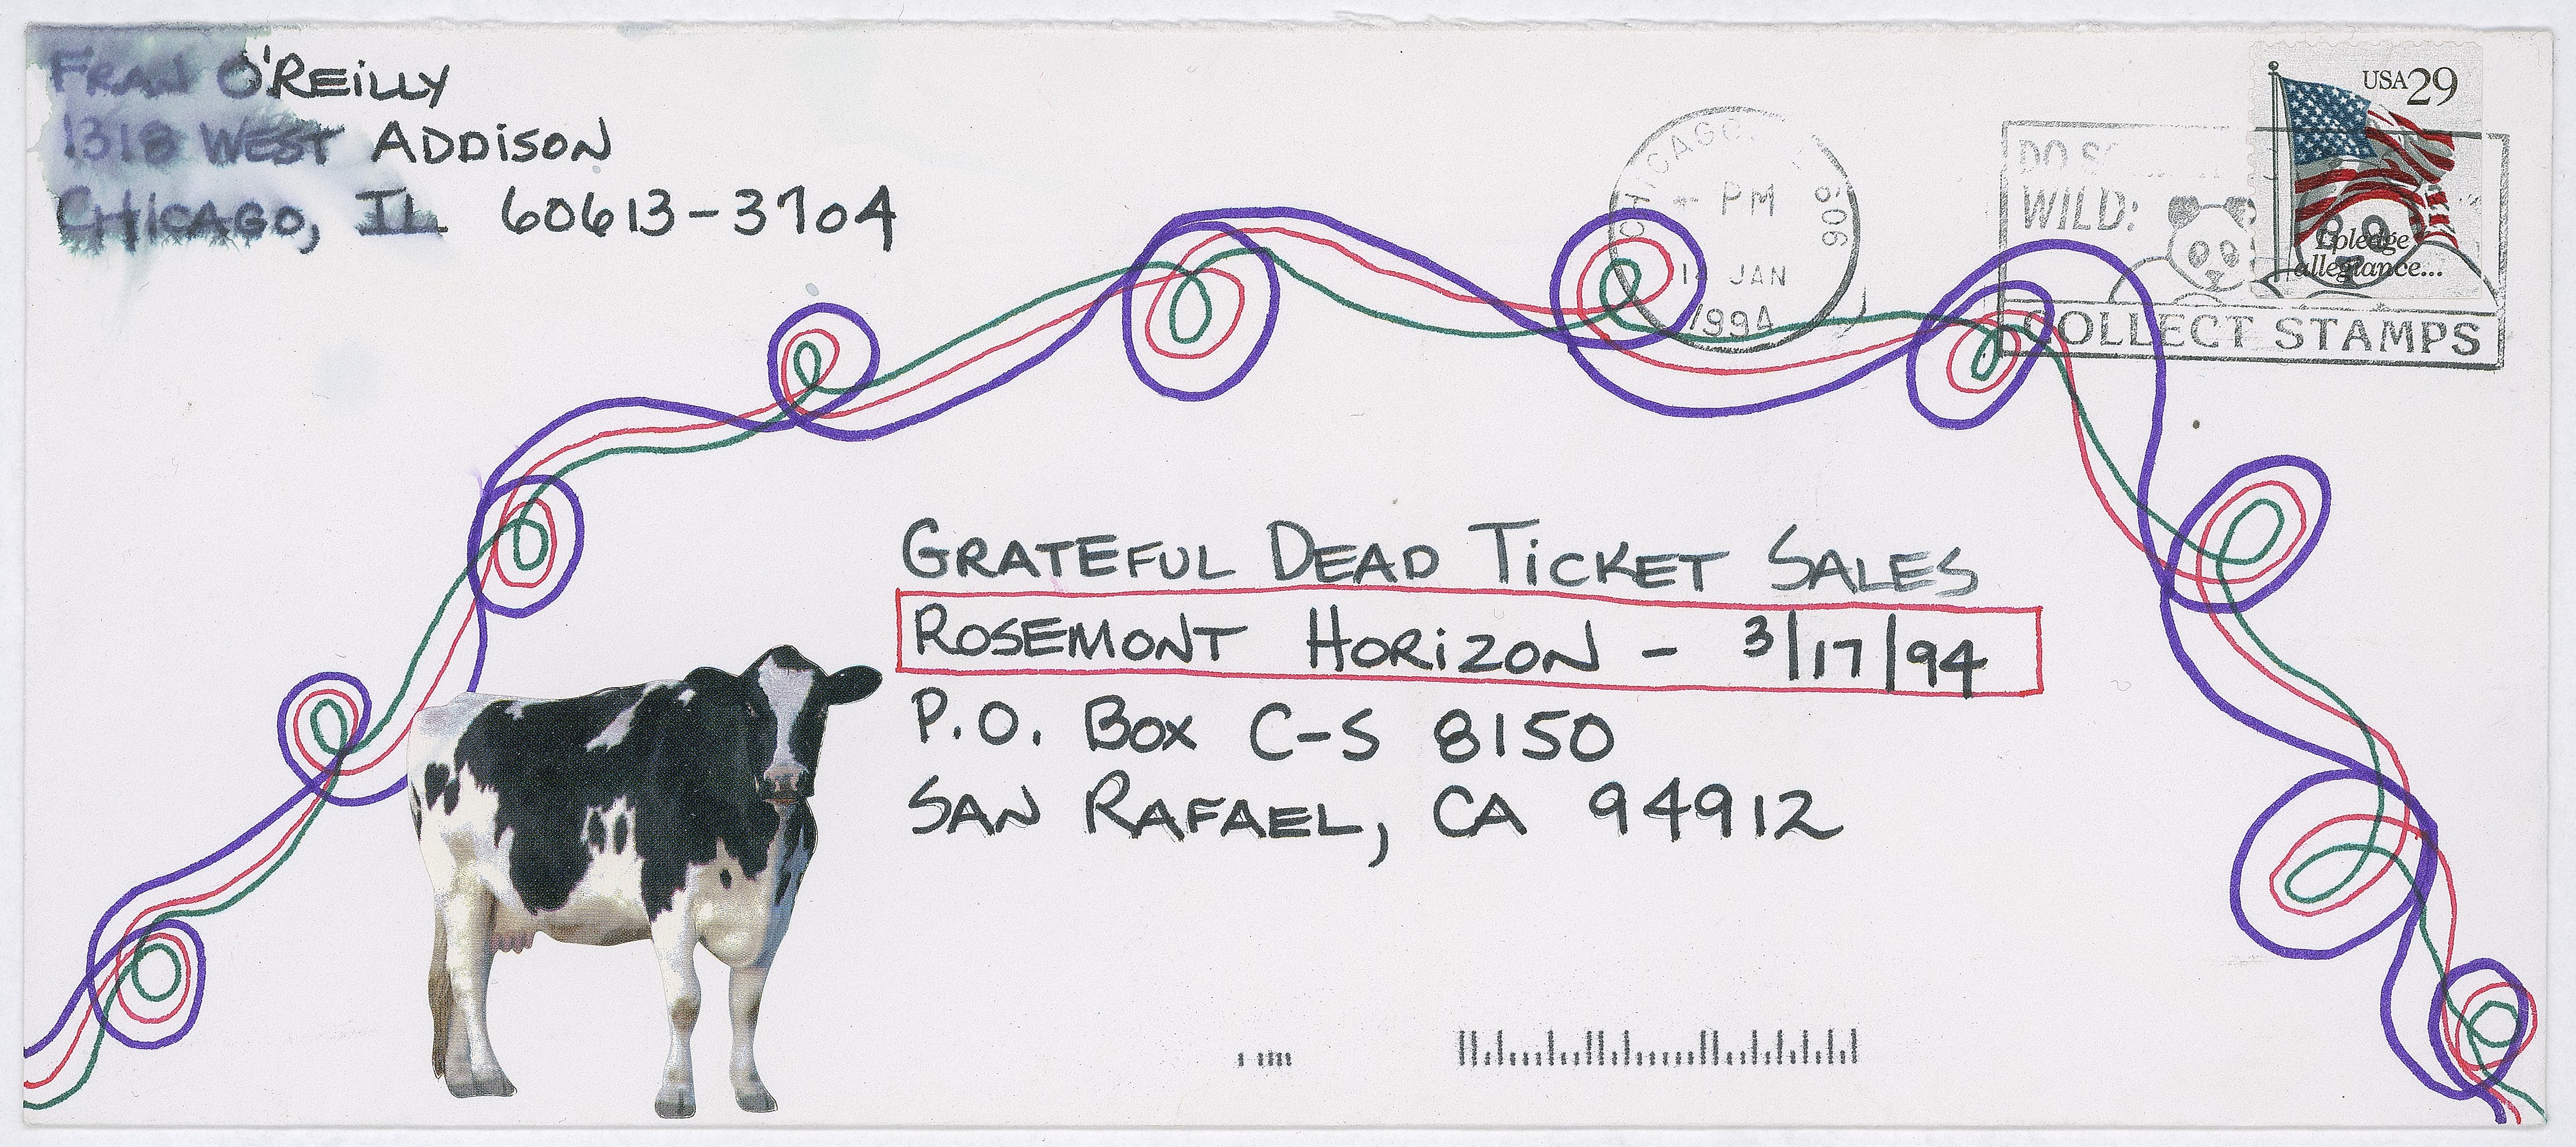 FRAN O'REILLY
1318 WEST ADDISON
CHICAGO, IL 60613-3704
CHICAGO, 606
PM
JAN
1994
DO S
WILD:
COLLECT STAMPS
USA 29
I pledge
allegiance...
GRATEFUL DEAD TICKET SALES
ROSEMONT HORIZON - 3/17/94
P.O. BOX C-S 8150
SAN RAFAEL, CA 94912